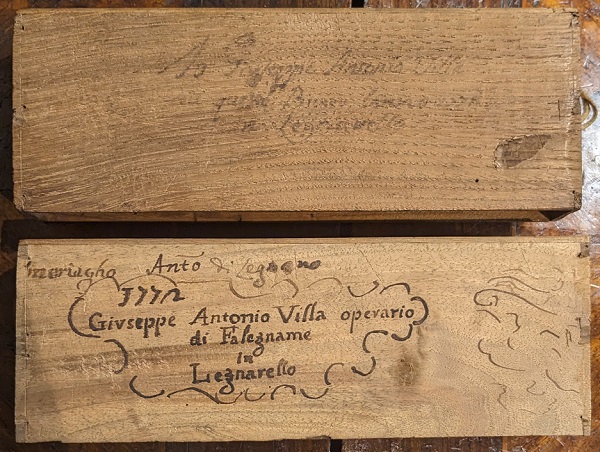 Giuseppe Antonio Villa
a Legnarello
meriagho Anto di Legnano
1772
Giuseppe Antonio Villa operario
di Falegname
in
Legnarello